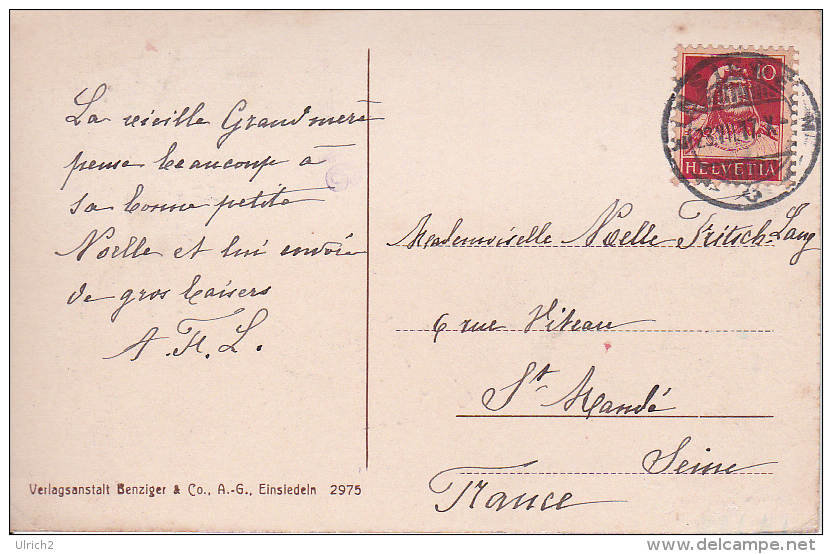 La vieille Grand mère
pense beaucoup à
sa bonne petite
Noëlle et lui envoie
de gros baisers
A. F. L.
Verlagsanstalt Benziger & Co., A.-G., Einsiedeln 2975
10
HELVETIA
Mademoiselle Noëlle Fritsch-Lang
6 rue Viteau
St. Mandé
Seine
France
Ulrich2
http://www.delcampe.net